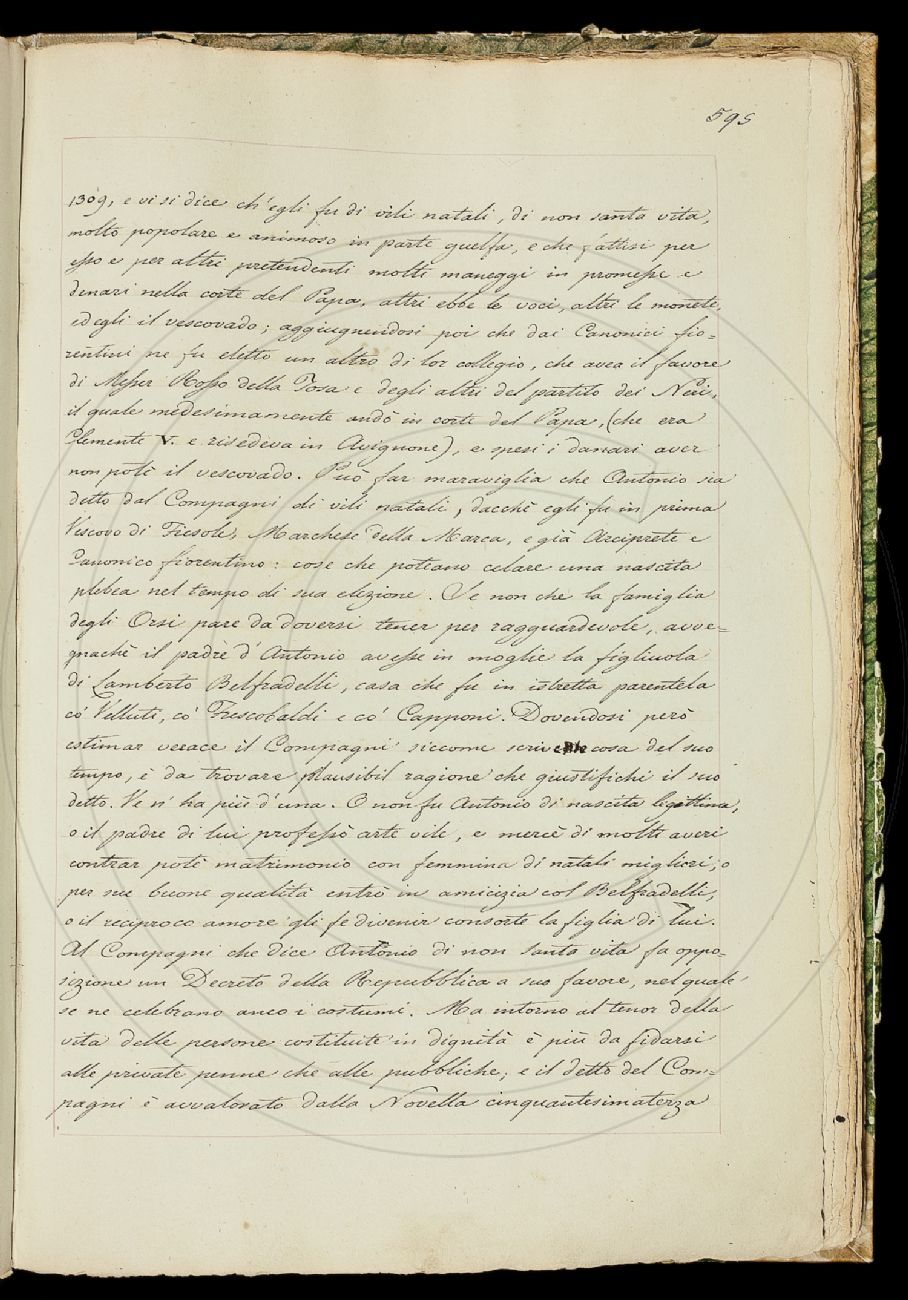 595
1309, e vi si dice ch'egli fu di vili natali, di non santa vita,
molto popolare e animoso in parte guelfa, e che fattisi per
esso e per altri pretendenti molti maneggi in promesse e
denari nella corte del Papa, altri ebbe le voci, altri le monete,
ed egli il vescovado; aggiugnendosi poi che dai Canonici fio-
rentini ne fu eletto un altro di lor collegio, che avea il favore
di Messer Rosso della Tosa e degli altri del partito dei Neri,
il quale medesimamente andò in corte del Papa, (che era
Clemente V. e risedeva in Avignone), e spesi i danari aver
non potè il vescovado. Può far maraviglia che Antonio sia
detto dal Compagni di vili natali, dacchè egli fu in prima
Vescovo di Fiesole, Marchese della Marca, e già Arciprete e
Canonico fiorentino: cose che poteano celare una nascita
plebea nel tempo di sua elezione. Se non che la famiglia
degli Orsi pare da doversi tener per ragguardevole, avve-
gnachè il padre d'Antonio avesse in moglie la figliuola
di Lamberto Belfradelli, casa che fu in istretta parentela
co' Velluti, co' Frescobaldi e co' Capponi. Dovendosi però
estimar verace il Compagni siccome scrivente cosa del suo
tempo, è da trovare plausibil ragione che giustifichi il suo
detto. Ve n'ha più d'una. O non fu Antonio di nascita legittima,
o il padre di lui professò arte vile, e mercè di molti averi
contrar potè matrimonio con femmina di natali migliori; o
per sue buone qualità entrò in amicizia col Belfradelli,
o il reciproco amore gli fe divenir consorte la figlia di lui.
Al Compagni che dice Antonio di non santa vita fa oppo-
sizione un Decreto della Repubblica a suo favore, nel quale
se ne celebrano anco i costumi. Ma intorno al tenor della
vita delle persone costituite in dignità è più da fidarsi
alle private penne che alle pubbliche; e il detto del Com-
pagni è avvalorato dalla Novella cinquantesimaterza